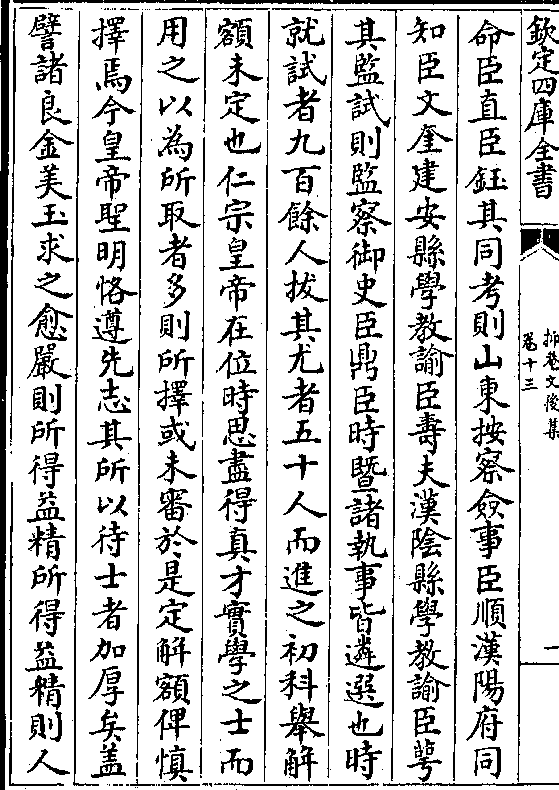 欽定四庫全書
抑菴文後集
卷十三
一
命臣直臣鈺其同考則山東按察僉事臣順漢陽府同
知臣文奎建安縣學教諭臣壽夫漢陰縣學教諭臣蕚
其監試則監察御史臣鼎臣時暨諸執事皆遴選也時
就試者九百餘人拔其尤者五十人而進之初科舉解
額未定也仁宗皇帝在位時思盡得真才實學之士而
用之以為所取者多則所擇或未審於是定解額俾慎
擇焉今皇帝聖明恪遵先志其所以待士者加厚矣盖
譬諸良金美玉求之愈嚴則所得益精所得益精則人